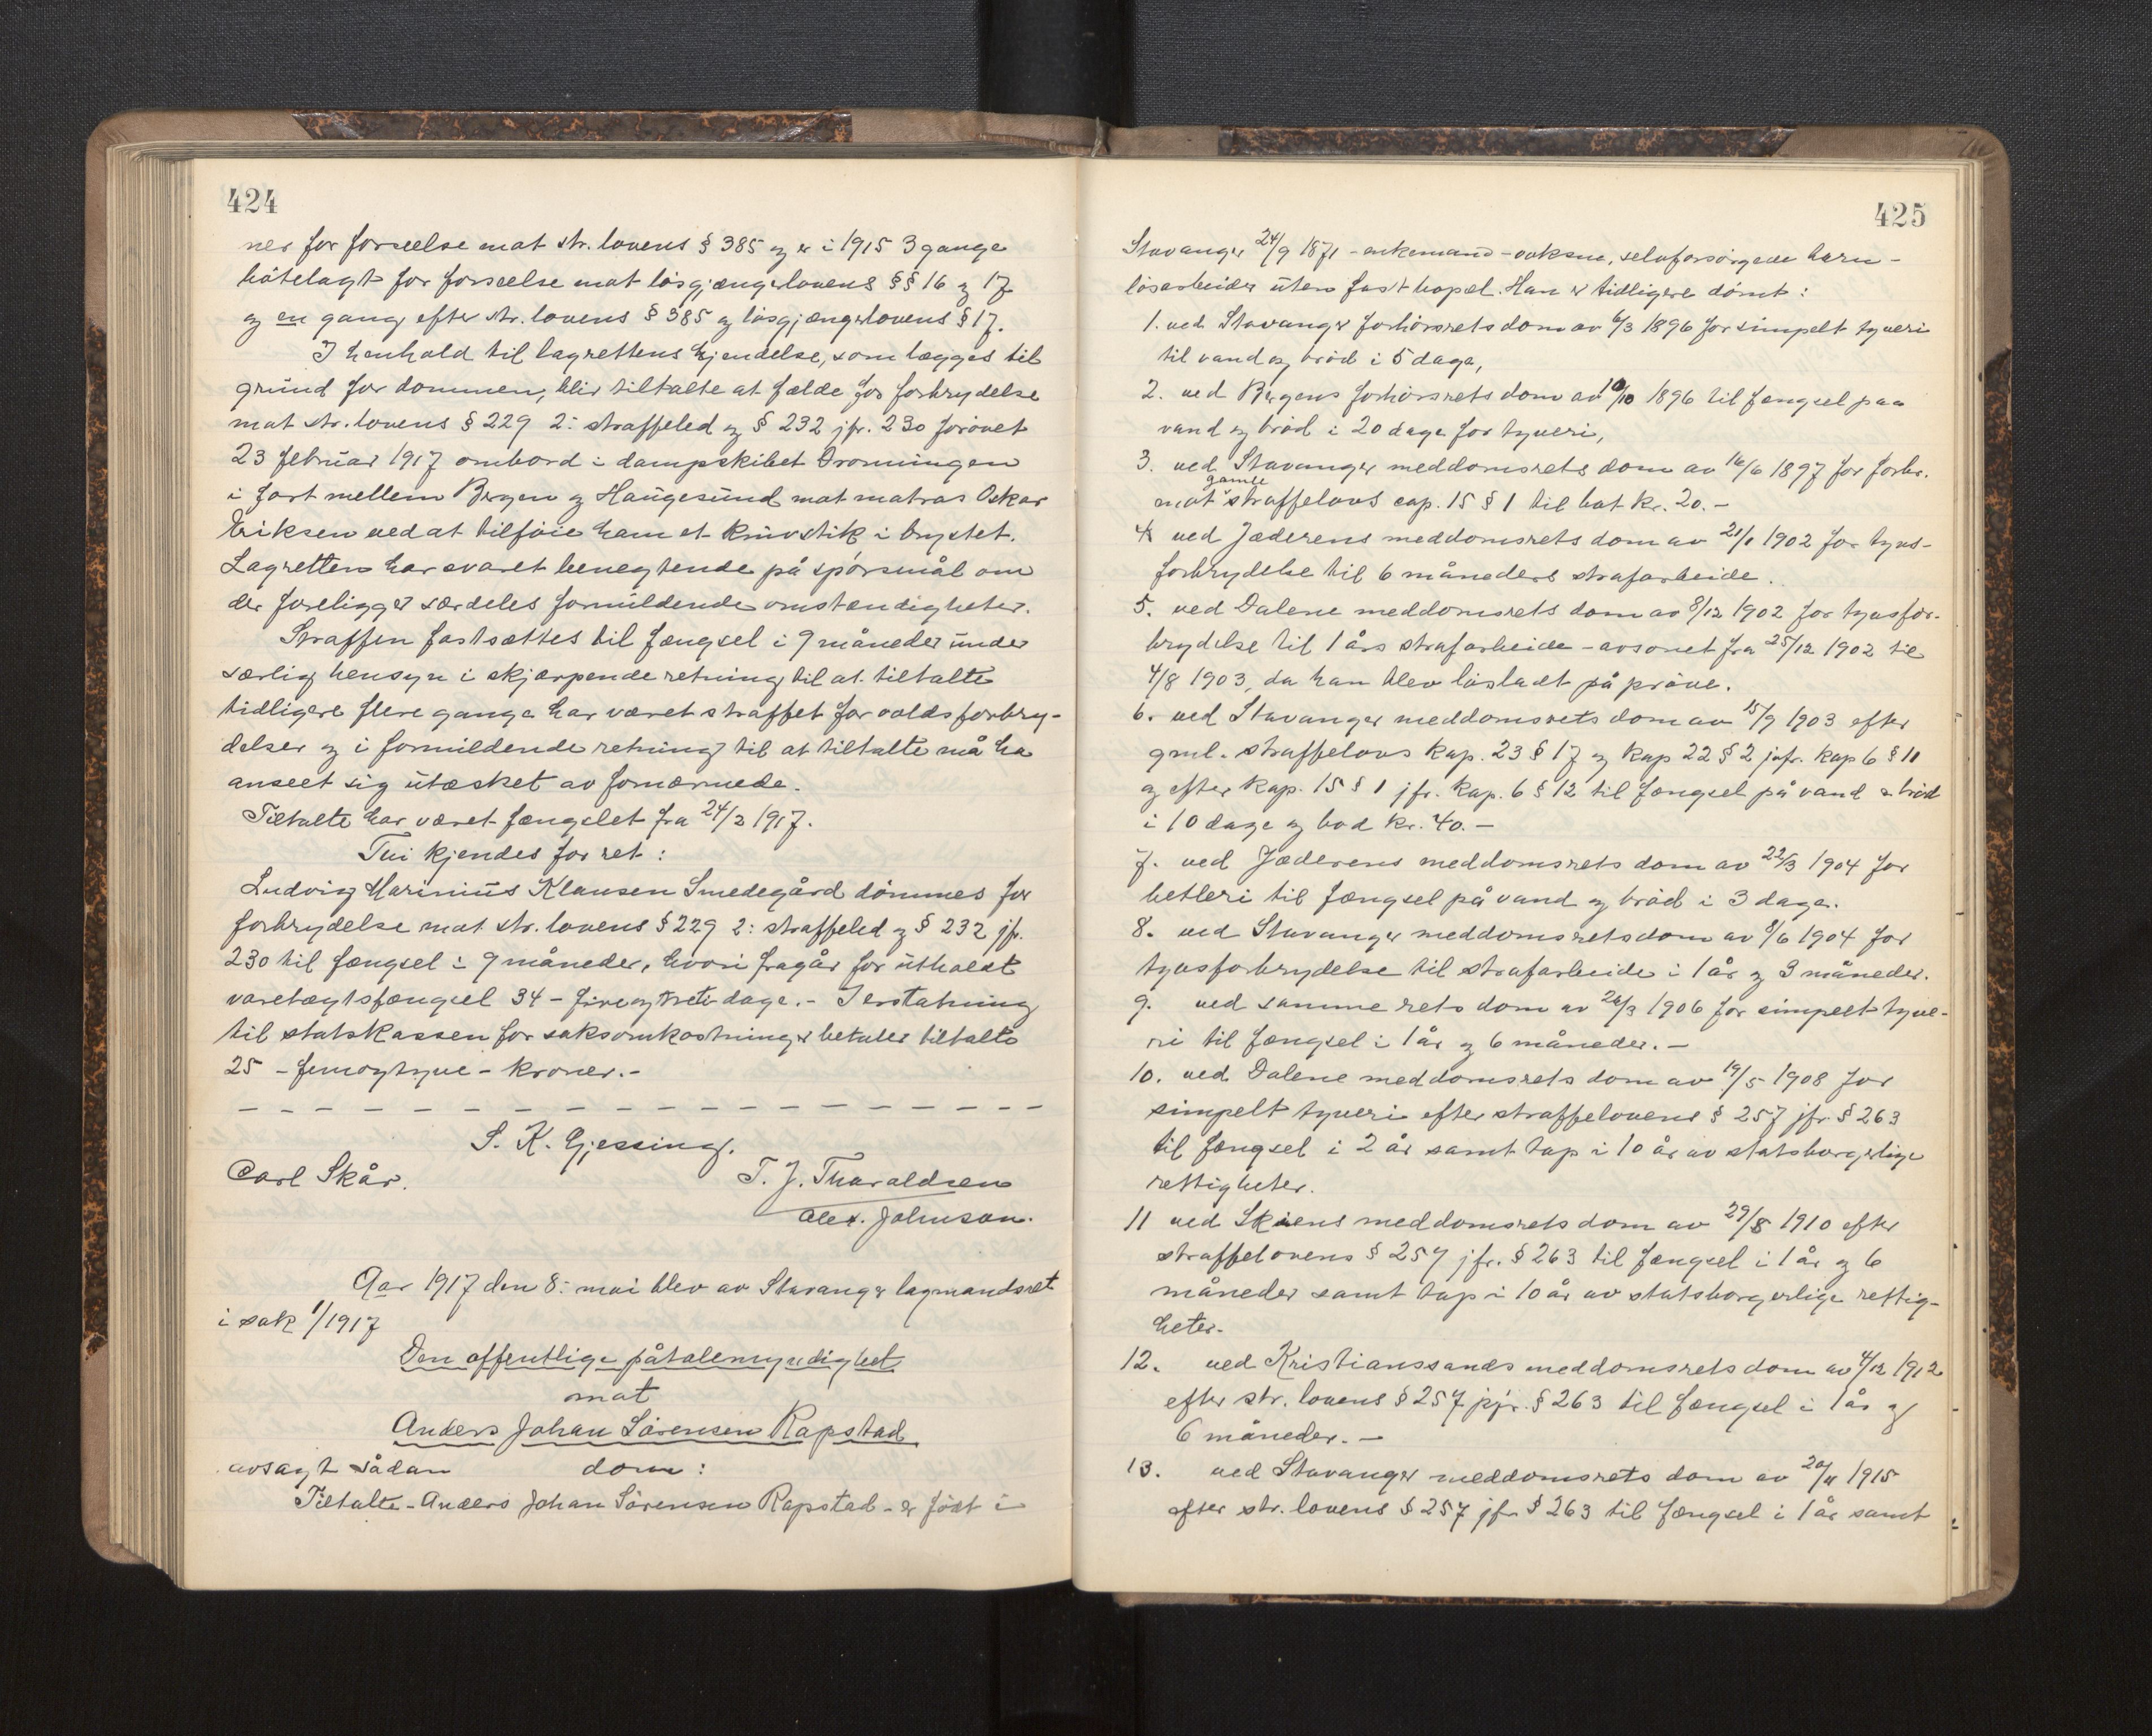 424
ner for forseelse mot str. lovens § 385 og er i 1915 3 gange
bøtelagt for forseelse mot løsgjængerlovens §§ 16 og 17
og en gang efter str. lovens § 385 og løsgjængerlovens § 17.
I henhold til lagrettens kjendelse, som lægges til
grund for dommen, blir tiltalte at fælde for forbrydelse
mot str. lovens § 229 2: straffeled og § 232 jfr. 230 forøvet
23 februar 1917 ombord i dampskibet Dronningen
i fart mellem Bergen og Haugesund mot matros Oskar
Eriksen ved at tilføie ham et knivstik i brystet.
Lagretten har svaret benegtende på spørsmål om
der foreligger særdeles formildende omstændigheter.
Straffen fastsættes til fængsel i 9 måneder under
særlig hensyn i skjærpende retning til at tiltalte
tidligere flere gange har været straffet for voldsforbry-
delser og i formildende retning til at tiltalte må ha
anseet sig utæsket av fornærmede.
Tiltalte har været fængslet fra 24/2 1917.
Thi kjendes for ret:
Ludvig Marinius Klausen Smedegård dømmes for
forbrydelse mot str. lovens § 229 2: straffeled og § 232 jfr.
230 til fængsel i 9 måneder, hvori fragår for utholdt
varetægtsfængsel 34 - fireogtreti dage. - I erstatning
til statskassen for saksomkostninger betaler tiltalte
25 - femogtyve - kroner. -
S. K. Gjessing.
Carl Skår. T. J. Tharaldsen
Alex. Johnson.
Aar 1917 den 8: mai blev av Stavanger lagmandsret
i sak 1/1917
Den offentlige påtalemyndighet
mot
Anders Johan Sørensen Rapstad
avsagt sådan dom:
Tiltalte - Anders Johan Sørensen Rapstad - er født i
425
Stavanger 24/9 1871 - enkemand - voksne, selvforsørgede barn -
løsarbeider uten fast bopæl. Han er tidligere dømt:
1. ved Stavanger forhørsrets dom av 6/3 1896 for simpelt tyveri
til vand og brød i 5 dage,
2. ved Bergens forhørsrets dom av 10/10 1896 til fængsel paa
vand og brød i 20 dage for tyveri,
3. ved Stavanger meddomsrets dom av 16/6 1897 for forbr.
mot gamle straffelovs cap. 15 § 1 til bot kr. 20. -
4 ved Jæderens meddomsrets dom av 21/1 1902 for tyvs-
forbrydelse til 6 måneders strafarbeide.
5. ved Dalene meddomsrets dom av 8/12 1902 for tyvsfor-
brydelse til 1 års strafarbeide - avsonet fra 25/12 1902 til
4/8 1903, da han blev løsladt på prøve.
6. ved Stavanger meddomsrets dom av 15/9 1903 efter
gml. straffelovs kap. 23 § 17 og kap 22 § 2 jfr. kap 6 § 11
og efter kap. 15 § 1 jfr. kap. 6 § 12 til fængsel på vand & brød
i 10 dage og bod kr. 40. -
7. ved Jæderens meddomsrets dom av 22/3 1904 for
betleri til fængsel på vand og brød i 3 dage.
8. ved Stavanger meddomsrets dom av 8/6 1904 for
tyvsforbrydelse til strafarbeide i 1 år og 3 måneder.
9. ved samme rets dom av 26/3 1906 for simpelt tyve-
ri til fængsel i 1 år og 6 måneder. -
10. ved Dalene meddomsrets dom av 19/5 1908 for
simpelt tyveri efter straffelovens § 257 jfr. § 263
til fængsel i 2 år samt tap i 10 år av statsborgerlige
rettigheter.
11 ved Skiens meddomsrets dom av 29/8 1910 efter
straffelovens § 257 jfr. § 263 til fængsel i 1 år og 6
måneder samt tap i 10 år av statsborgerlige rettig-
heter.
12. ved Kristianssands meddomsrets dom av 4/12 1912
efter str. lovens § 257 jfr. § 263 til fængsel i 1 år og
6 måneder. -
13. ved Stavanger meddomsrets dom av 20/11 1915
efter str. lovens § 257 jfr § 263 til fængsel i 1 år samt